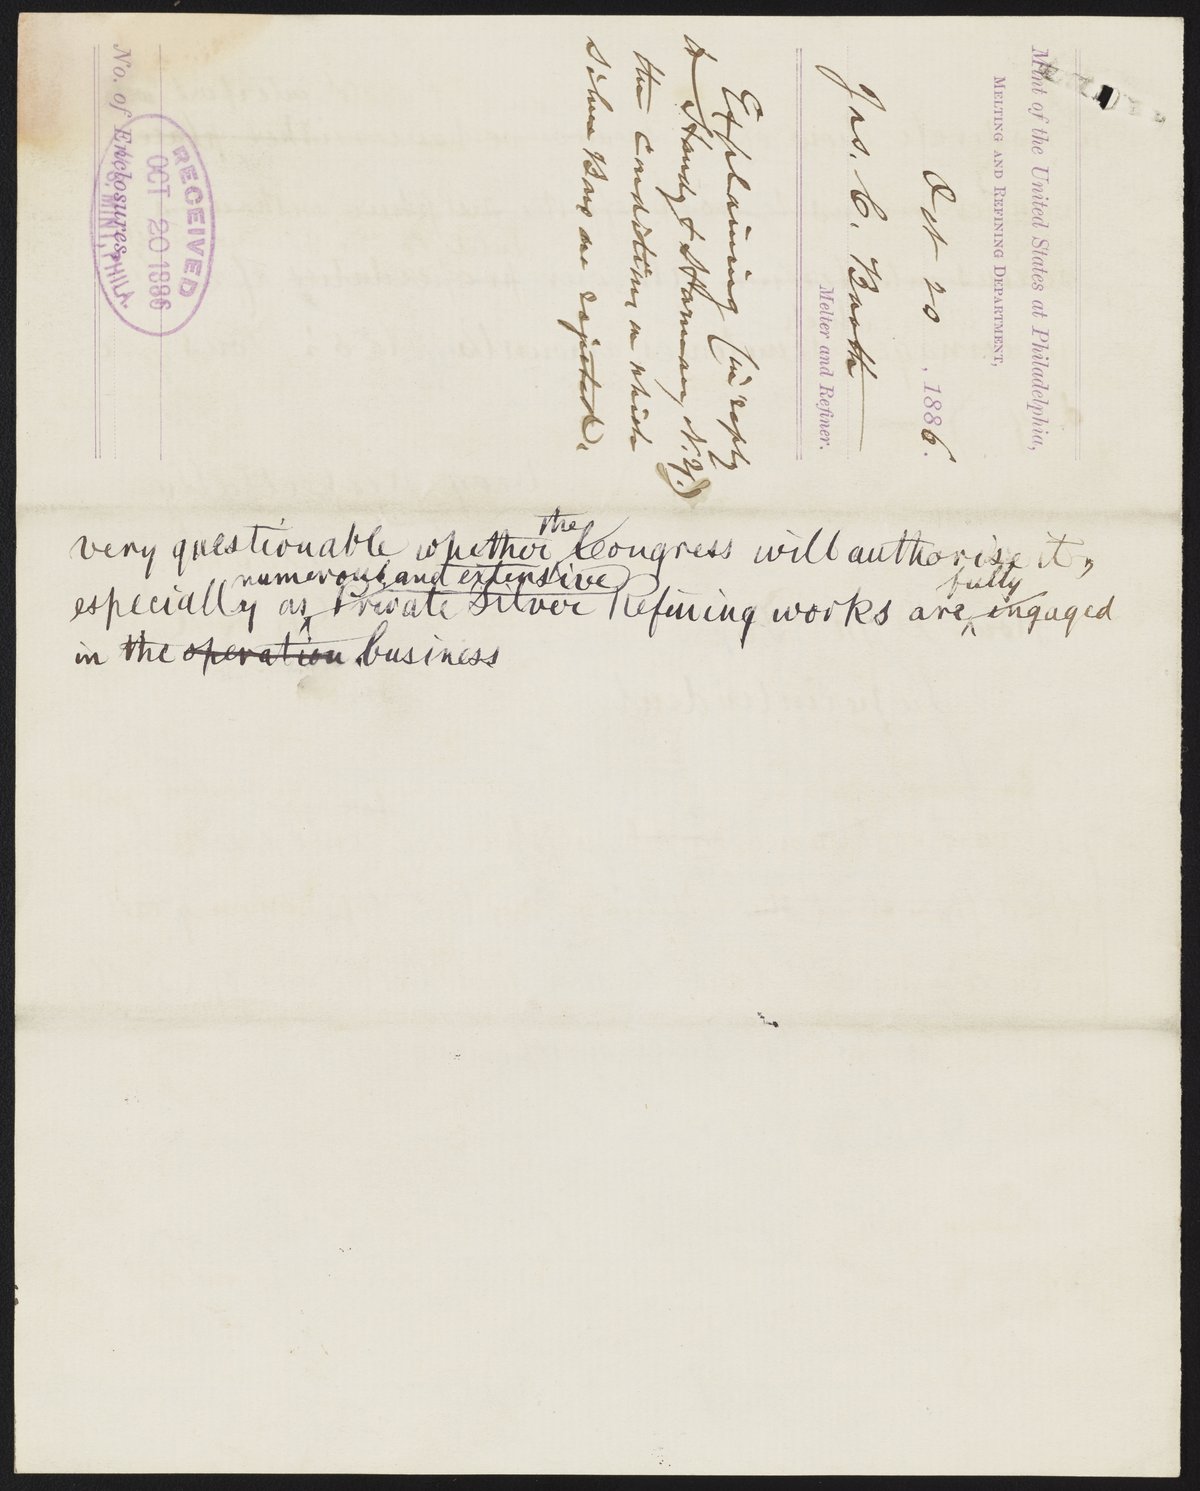 Mint of the United States at Philadelphia,
MELTING AND REFINING DEPARTMENT,
Oct 20, 1886.
Jas. C. Booth
Melter and Refiner.
Explaining (in reply
to Handy & Harman, N.Y.)
the conditions in which
silver Bars are rejected.
No. of Enclosures,
RECEIVED
OCT 20 1886
U.S. MINT, PHILA.
very questionable whether the Congress will authorise it,
especially as numerous and extensive Private Silver Refining works are fully engaged
in the operation business